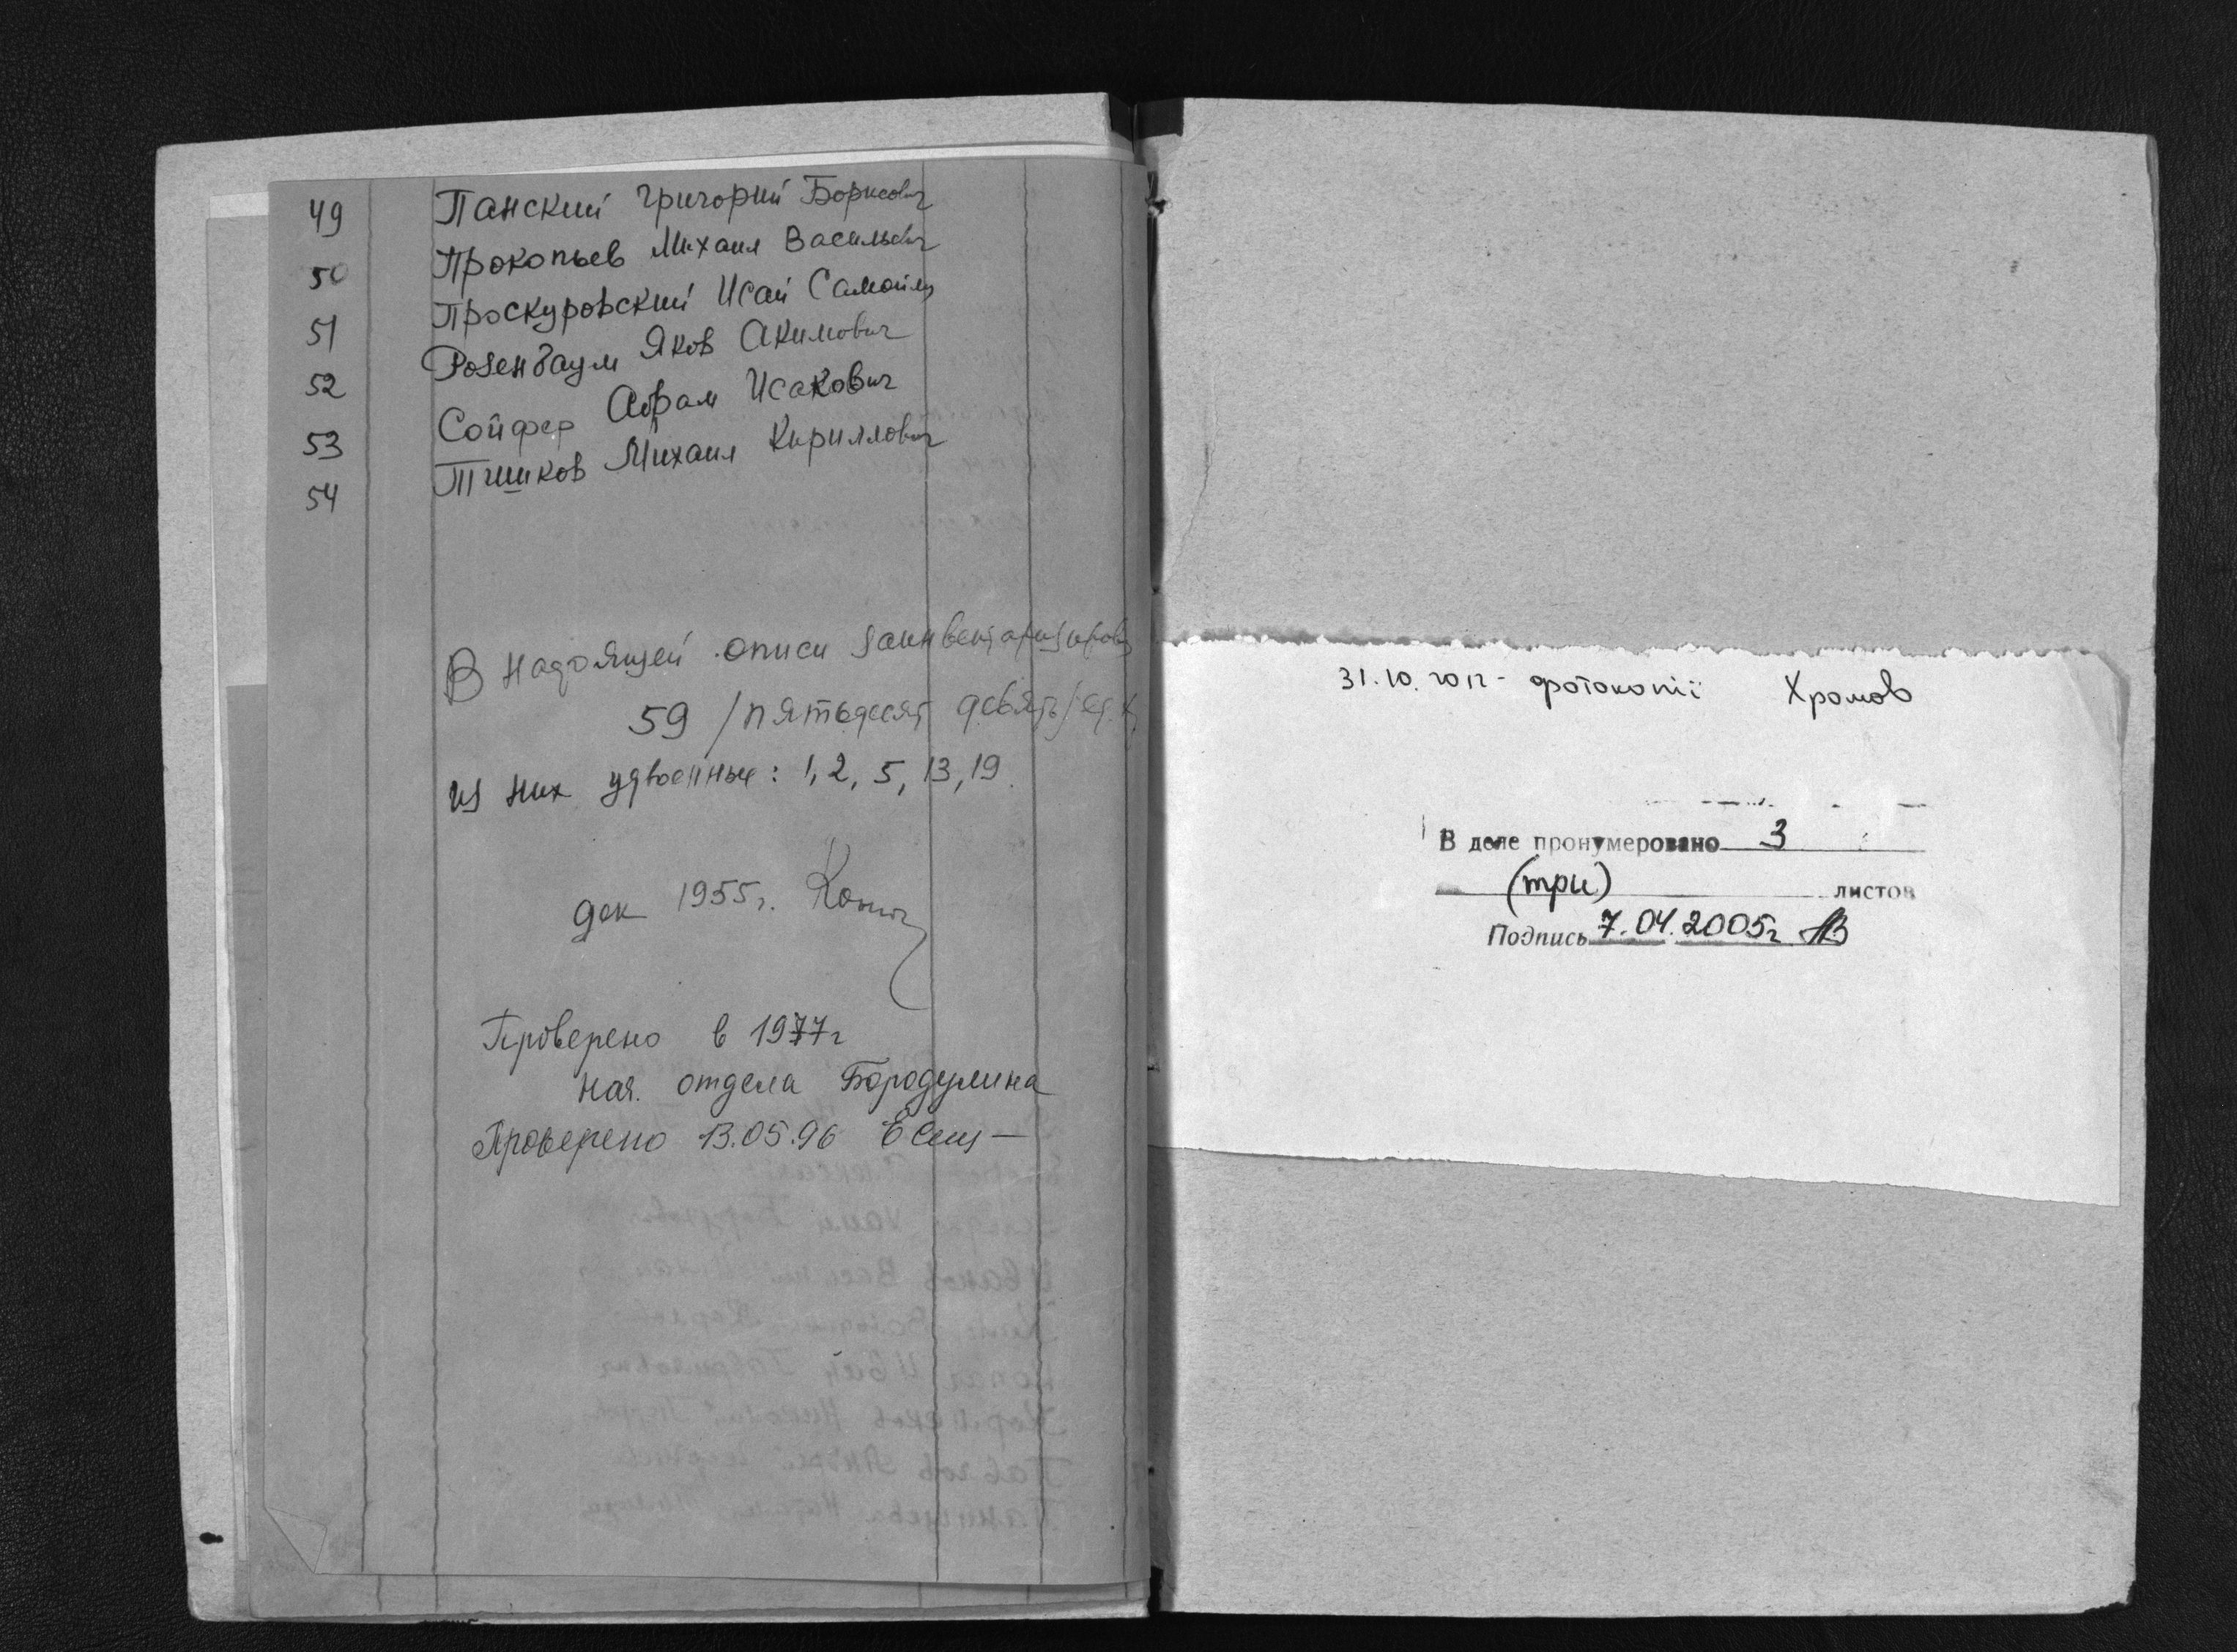 49 Панский Григорий Борисович
50 Прокопьев Михаил Васильевич
51 Проскуровский Исай Самойл
52 Розенбаум Яков Акимович
53 Сойфер Абрам Исакович
54 Тишков Михаил Кириллович
В настоящей описи заинвентаризиров
59 /пятьдесят девять/ ед.
из них удвоенные: 1, 2, 5, 13, 19
дек 1955 г.
Проверено в 1977 г
нач. отдела Бородулина
Проверено 13.05.96
31.10.2012 - фотокопії Хромов
В деле пронумеровано 3
(три) листов
Подпись 7.04.2005 г